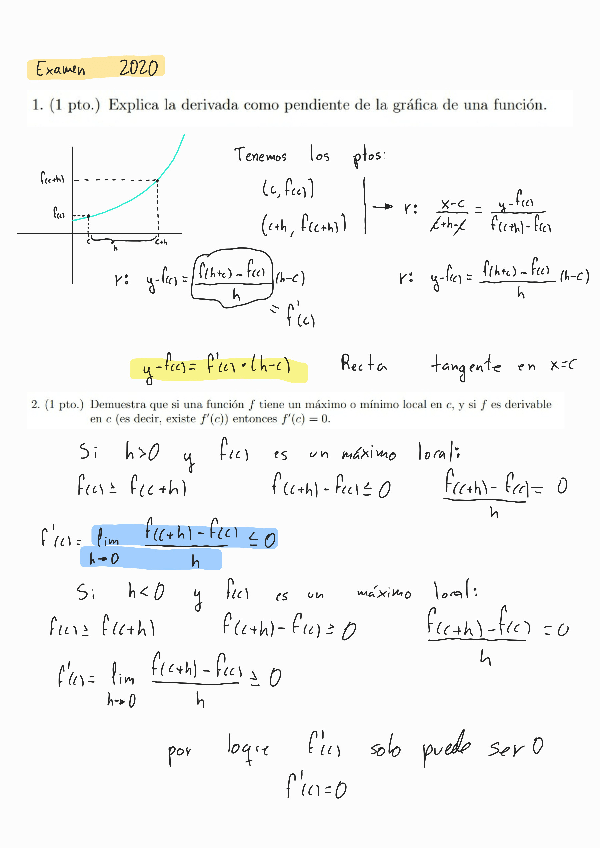 Examen 2020
1. (1 pto.) Explica la derivada como pendiente de la gráfica de una función.
Tenemos los ptos:
f(c+h)
f(c)
c h c+h
(c, f(c))
(c+h, f(c+h))
→ r: x-c / c+h-c = y-f(c) / f(c+h)-f(c)
r: y-f(c) = f(h+c)-f(c) / h (h-c)
= f'(c)
r: y-f(c) = f(h+c)-f(c) / h (h-c)
y-f(c) = f'(c) · (h-c) Recta tangente en x=c
2. (1 pto.) Demuestra que si una función f tiene un máximo o mínimo local en c, y si f es derivable
en c (es decir, existe f'(c)) entonces f'(c) = 0.
Si h>0 y f(c) es un máximo local:
f(c) ≥ f(c+h) f(c+h)-f(c) ≤ 0 f(c+h)-f(c) / h = 0
f'(c) = lim h→0 f(c+h)-f(c) / h ≤ 0
Si h<0 y f(c) es un máximo local:
f(c) ≥ f(c+h) f(c+h)-f(c) ≥ 0 f(c+h)-f(c) / h = 0
f'(c) = lim h→0 f(c+h)-f(c) / h ≥ 0
por loque f'(c) solo puede ser 0
f'(c)=0